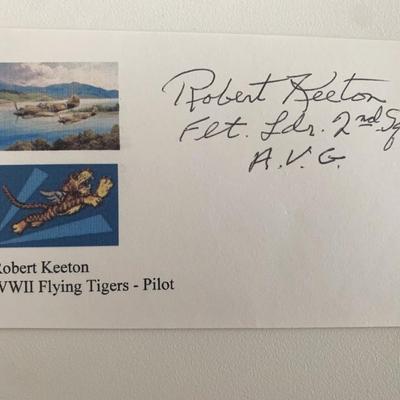 Robert Keeton
Flt. Ldr. 2nd Sq
A.V.G.
Robert Keeton
WWII Flying Tigers - Pilot